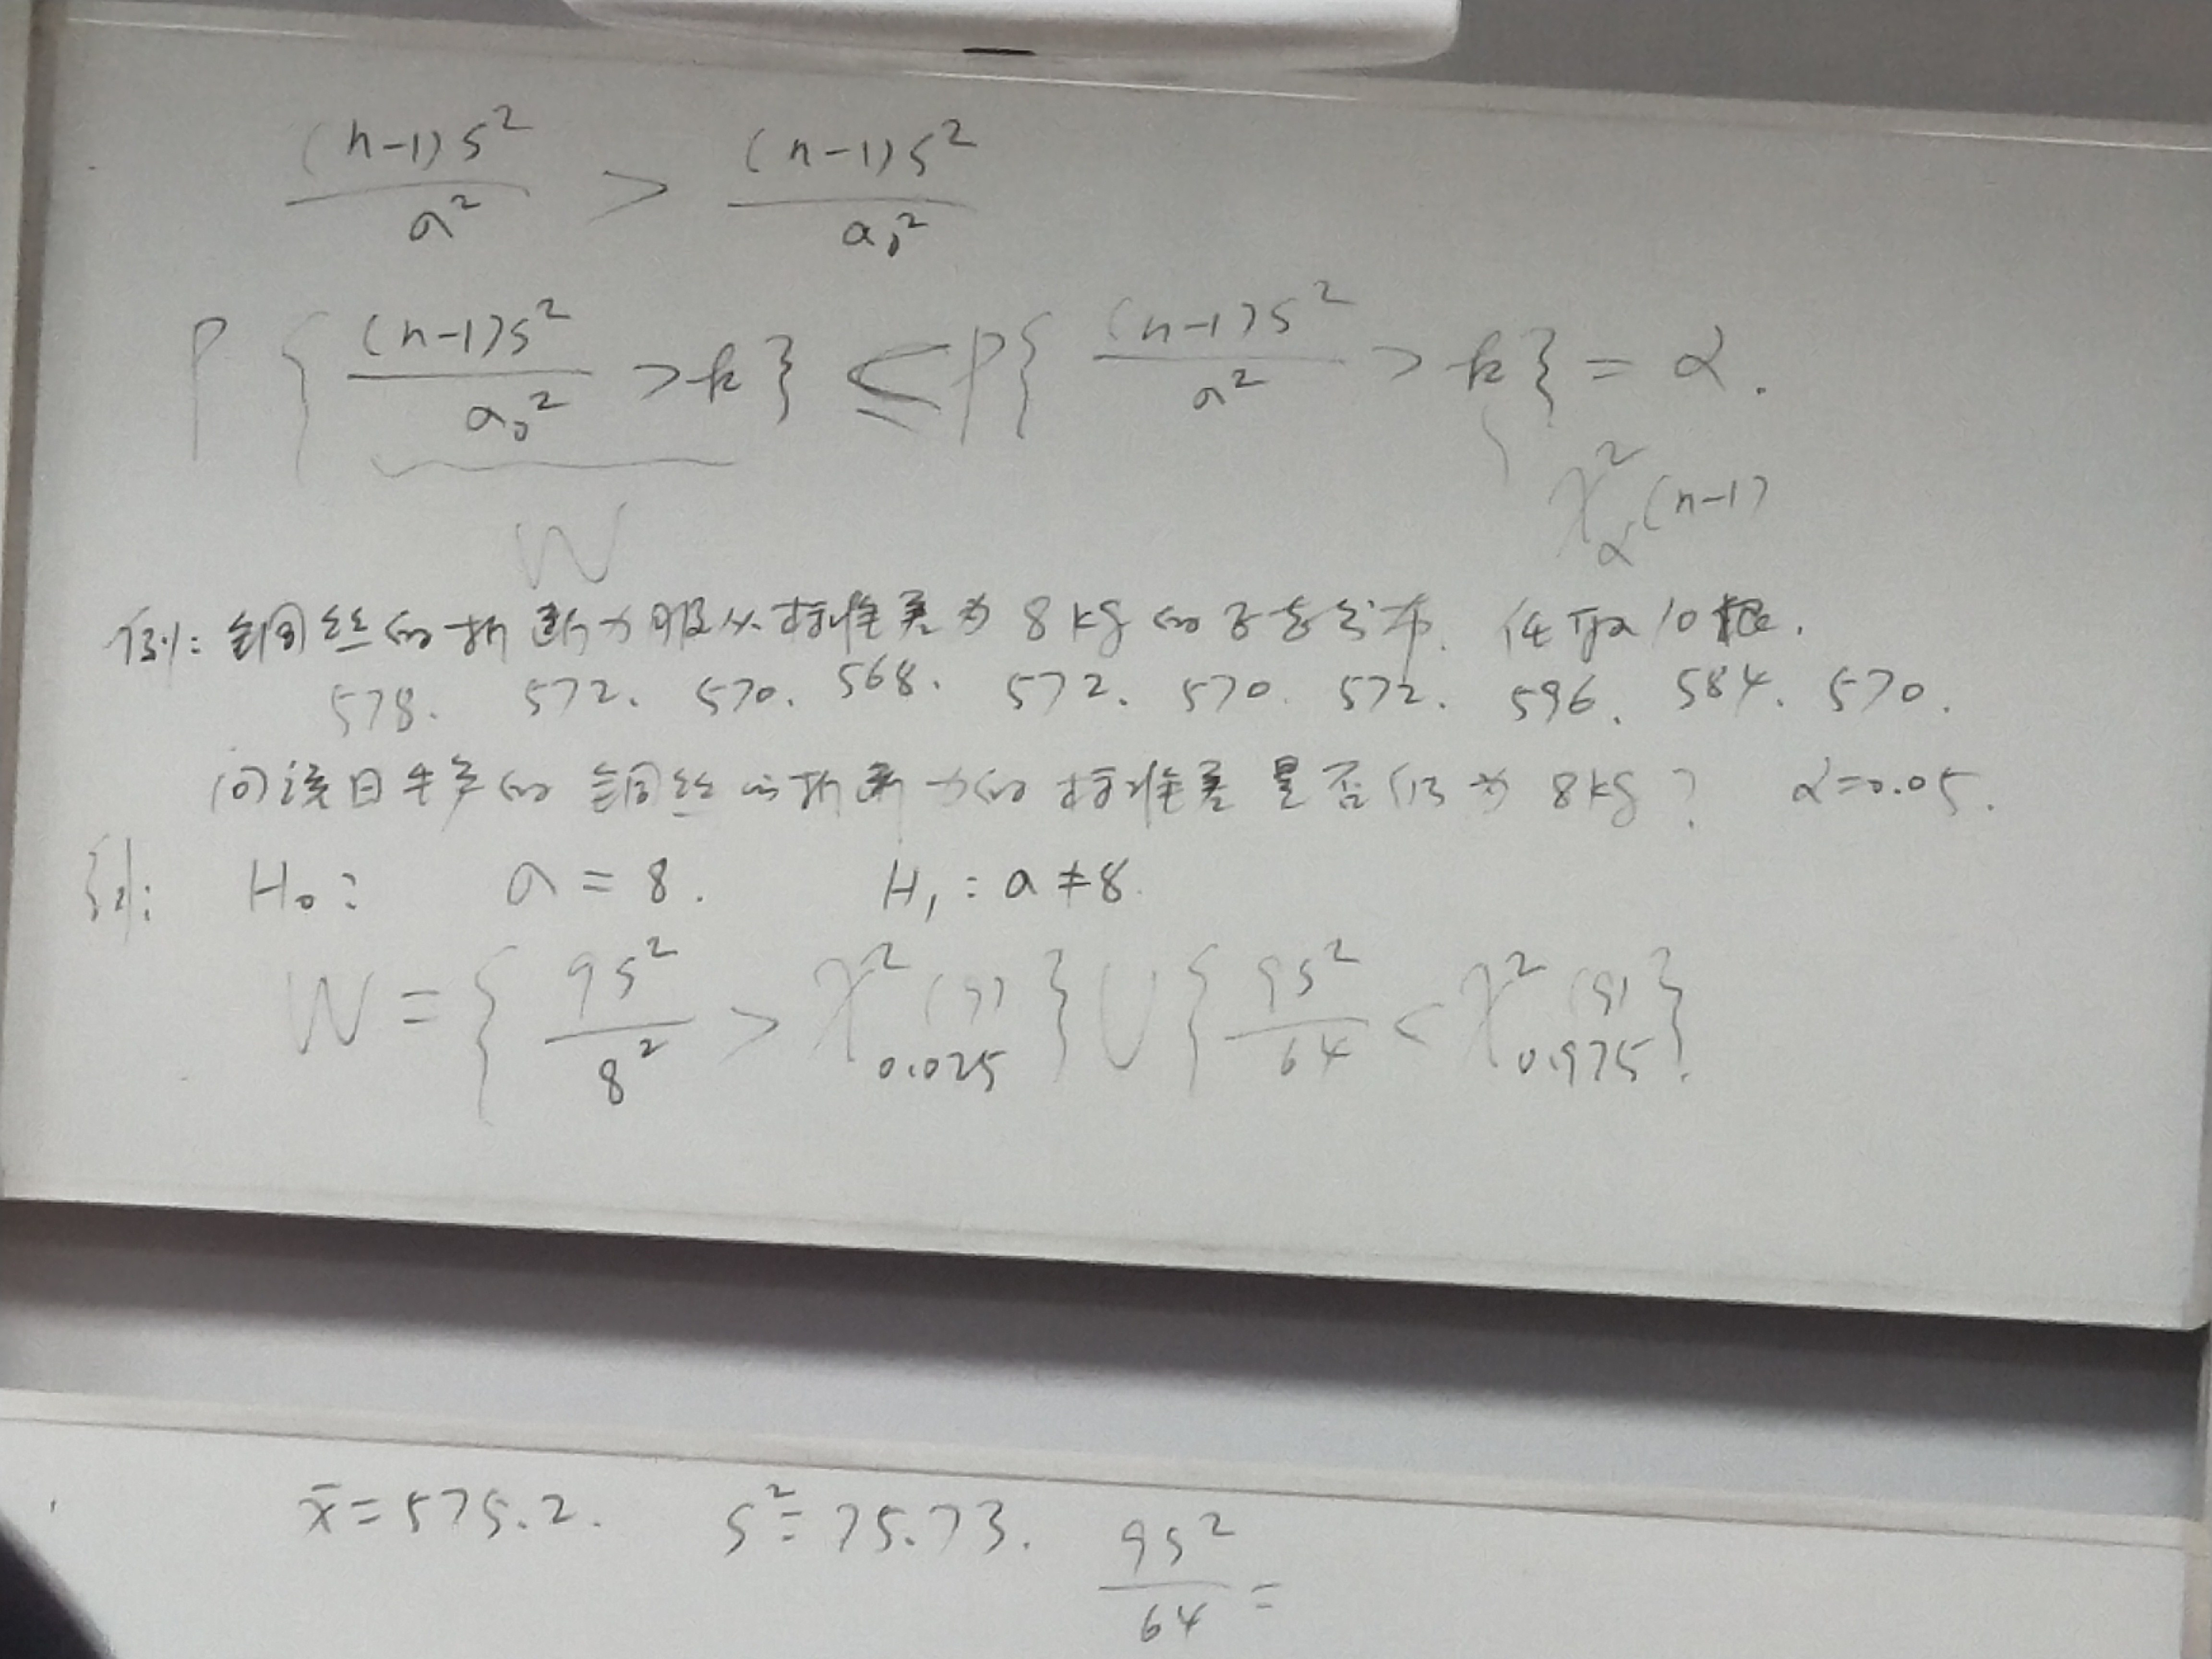 (n-1)s²/σ² > (n-1)s²/σ₀²
P{(n-1)s²/σ₀² > k} ≤ P{(n-1)s²/σ² > k} = α.
W
χ²_α(n-1)
例: 铜丝的折断力服从标准差为8kg的正态分布. 任取10根.
578. 572. 570. 568. 572. 570. 572. 596. 584. 570.
问该日生产的铜丝的折断力的标准差是否仍为8kg? α=0.05.
H₀: σ=8. H₁: σ≠8.
W={9s²/8² > χ²_0.025(9)}∪{9s²/64 < χ²_0.975(9)}.
x̄=575.2. s²=75.73. 9s²/64 =